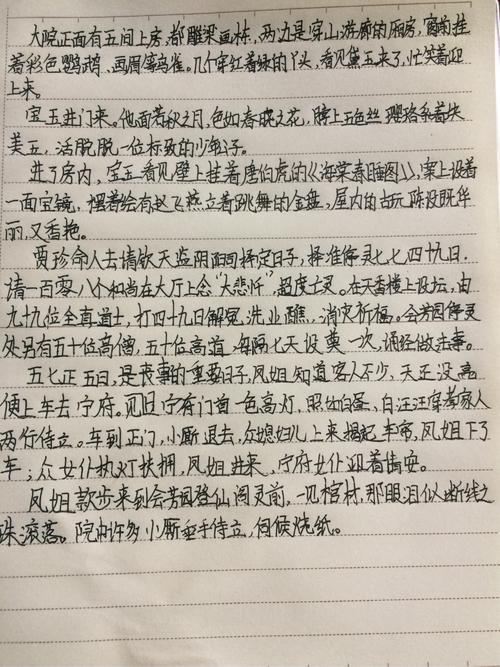 大院正面有五间上房,都雕梁画栋,两边是穿山游廊的厢房,窗前挂
着彩色鹦鹉、画眉等鸟雀。几个穿红着绿的丫头,看见黛玉来了,忙笑着迎
上来。
宝玉进门来。他面若秋之月,色如春晓之花,脖上五色丝璎珞系着块
美玉,活脱脱一位标致的少年公子。
进了房内,宝玉看见壁上挂着唐伯虎的《海棠春睡图》,案上设着
一面宝镜,摆着绘有赵飞燕立着跳舞的金盘,屋内的古玩陈设既华
丽,又香艳。
贾珍命人去请钦天监阴阳司择定日子,择准停灵七七四十九日.
请一百零八个和尚在大厅上念“大悲忏”超度亡灵。在天香楼上设坛,由
九十九位全真道士,打四十九日解冤洗业醮,消灾祈福。会芳园停灵
处另有五十位高僧,五十位高道,每隔七天设奠一次,诵经做法事。
五七正五日,是丧事的重要日子,凤姐知道客人不少,天正没亮
便上车去宁府。见旧宁府门首一色高灯,照如白昼,白汪汪穿孝家人
两行侍立。车到正门,小厮退去,众媳妇儿上来揭起车帘,凤姐下了
车;众女仆执灯扶拥,凤姐进来,宁府女仆迎着请安。
凤姐款步来到会芳园登仙阁灵前,一见棺材,那眼泪似断线之
珠滚落。院内许多小厮垂手侍立,伺候烧纸。